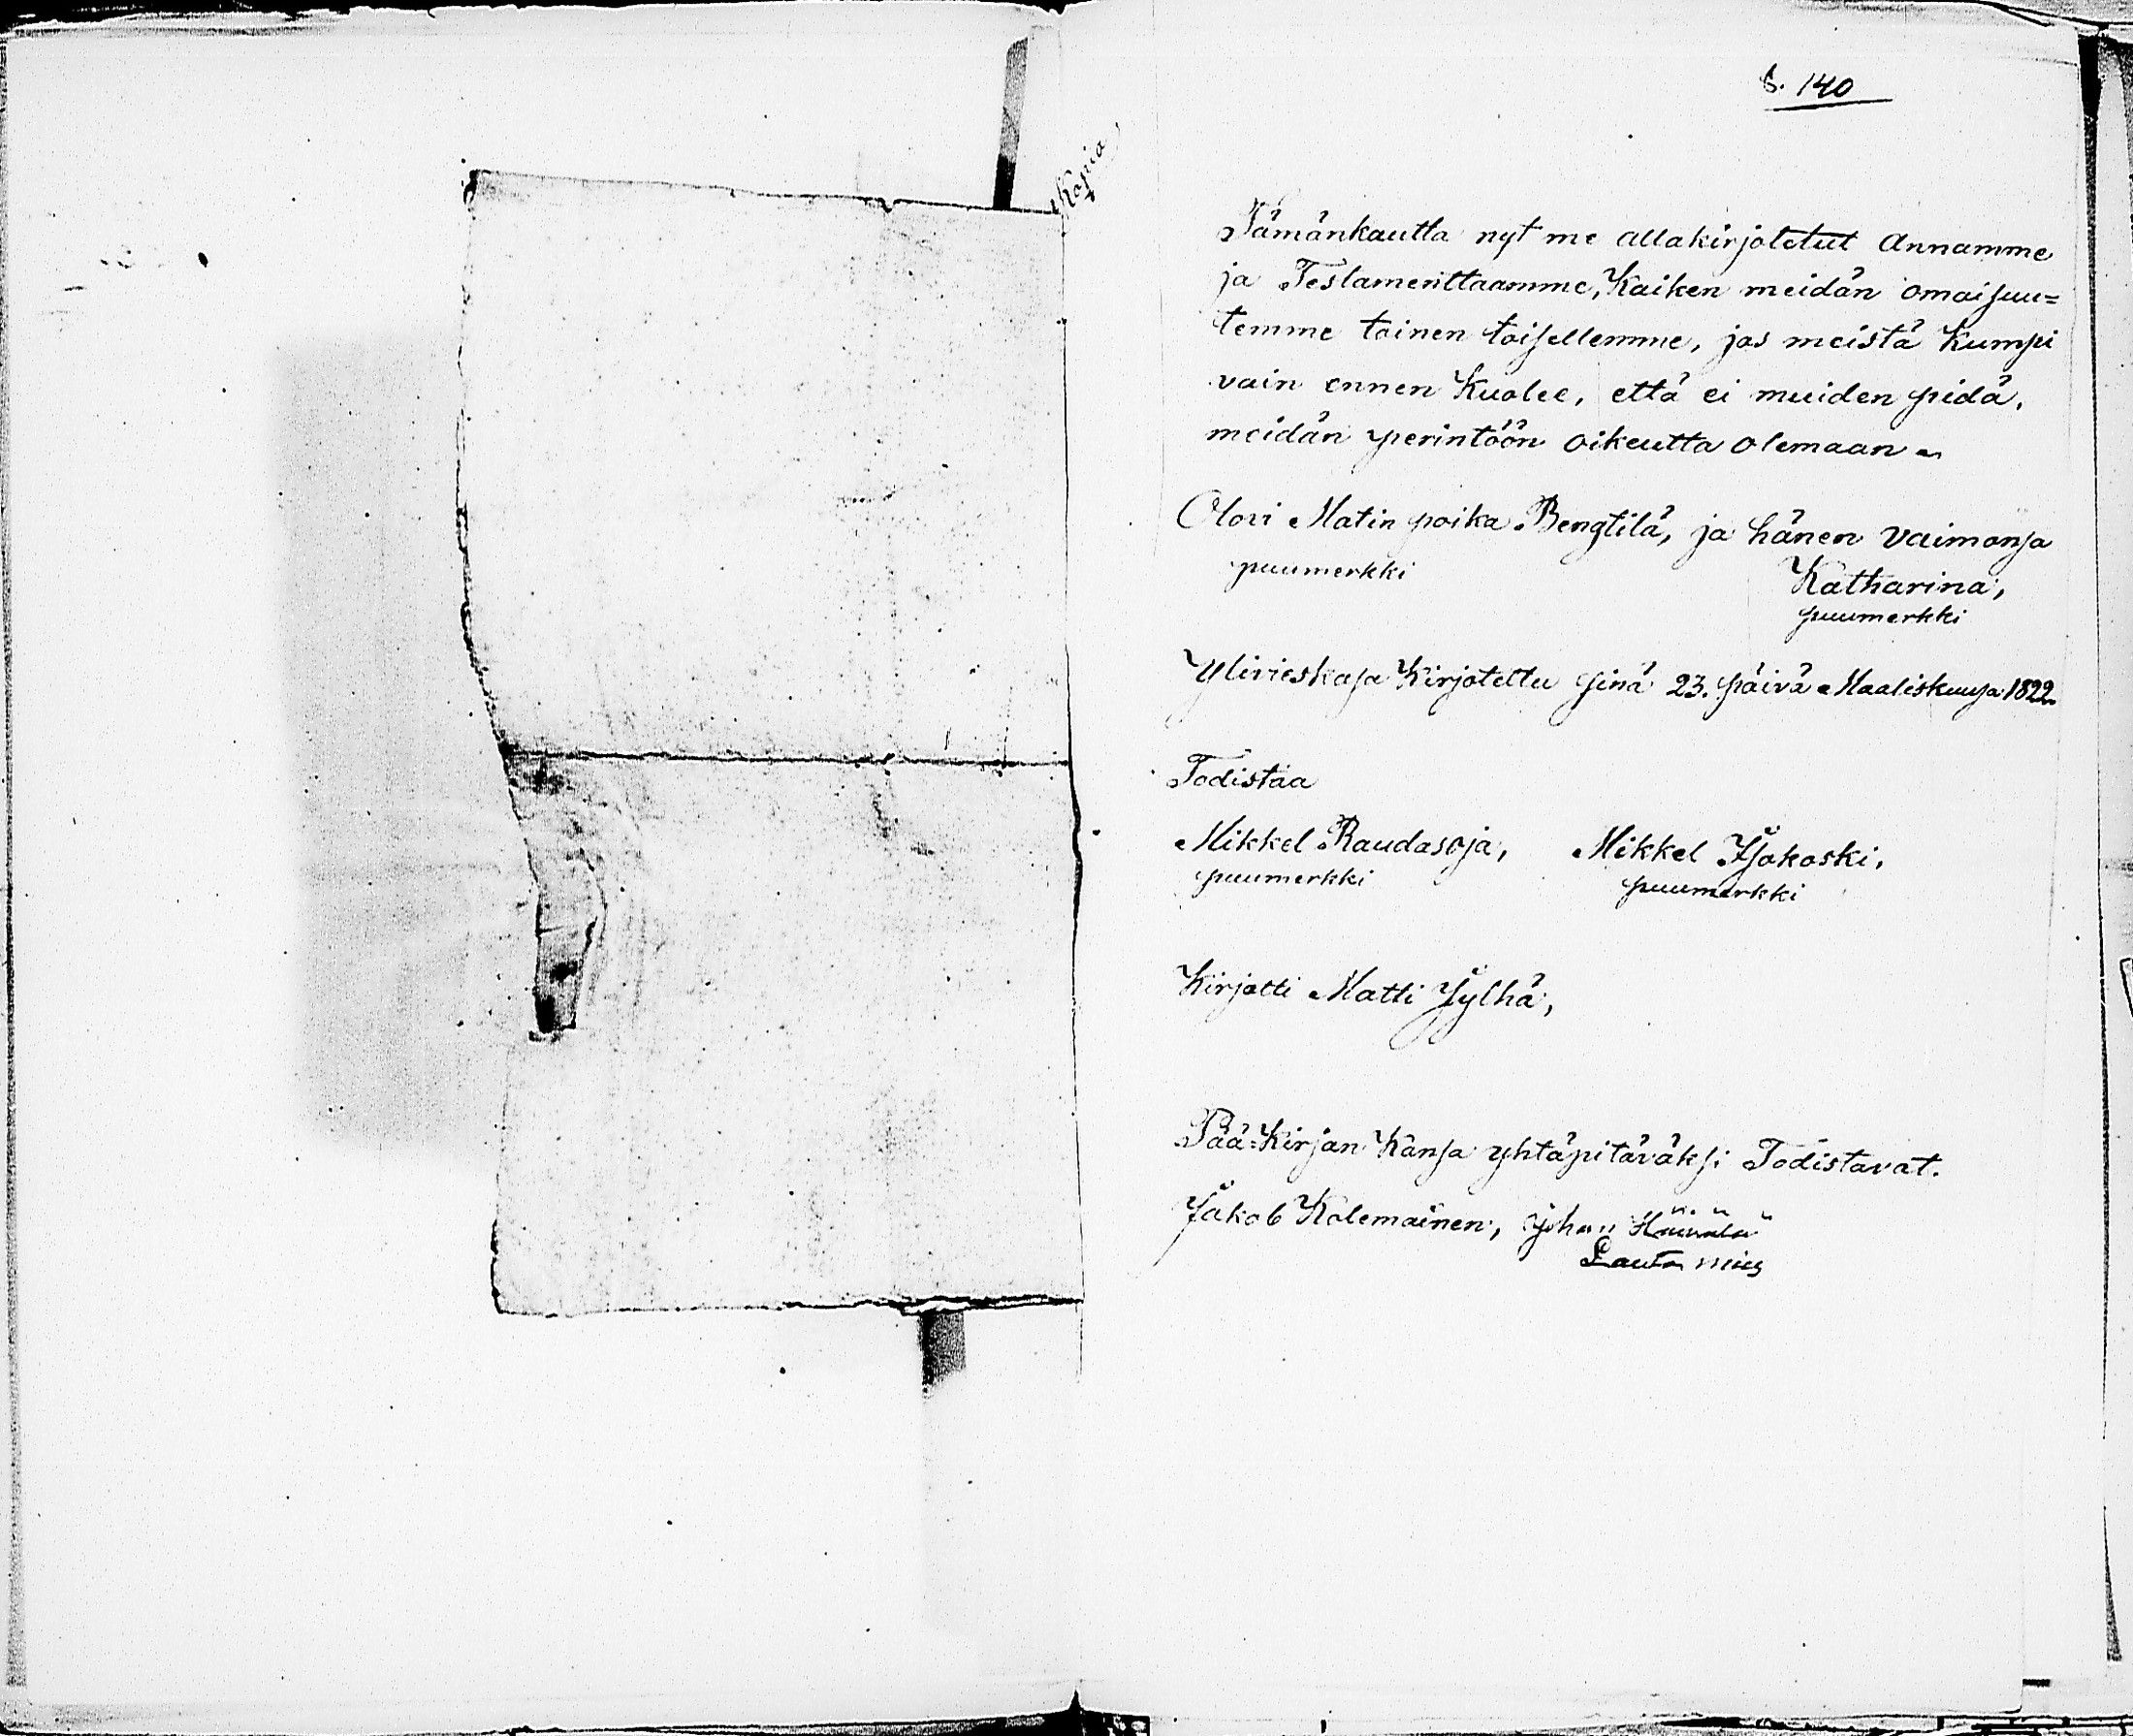 S. 140
Kopia
Tämänkautta nyt me allakirjotetut Annamme
ja Testamenttaamme, Kaiken meidän omaisuu=
temme toinen toisellemme, jos meistä Kumpi
vain ennen Kuolee, että ei muiden pidä,
meidän perintöön oikeutta olemaan
Olovi Matin poika Bengtilä, ja hänen vaimonsa
puumerkki Katharina,
puumerkki
Ylivieskasa Kirjotettu sinä 23. päivä Maaliskuusa 1822.
Todistaa
Mikkel Raudasoja, Mikkel Isokoski,
puumerkki puumerkki
Kirjotti Matti Jylhä,
Pää=Kirjan Kansa yhtäpitäväksi Todistavat.
Jakob Kolemainen, Johan
Lauta mies